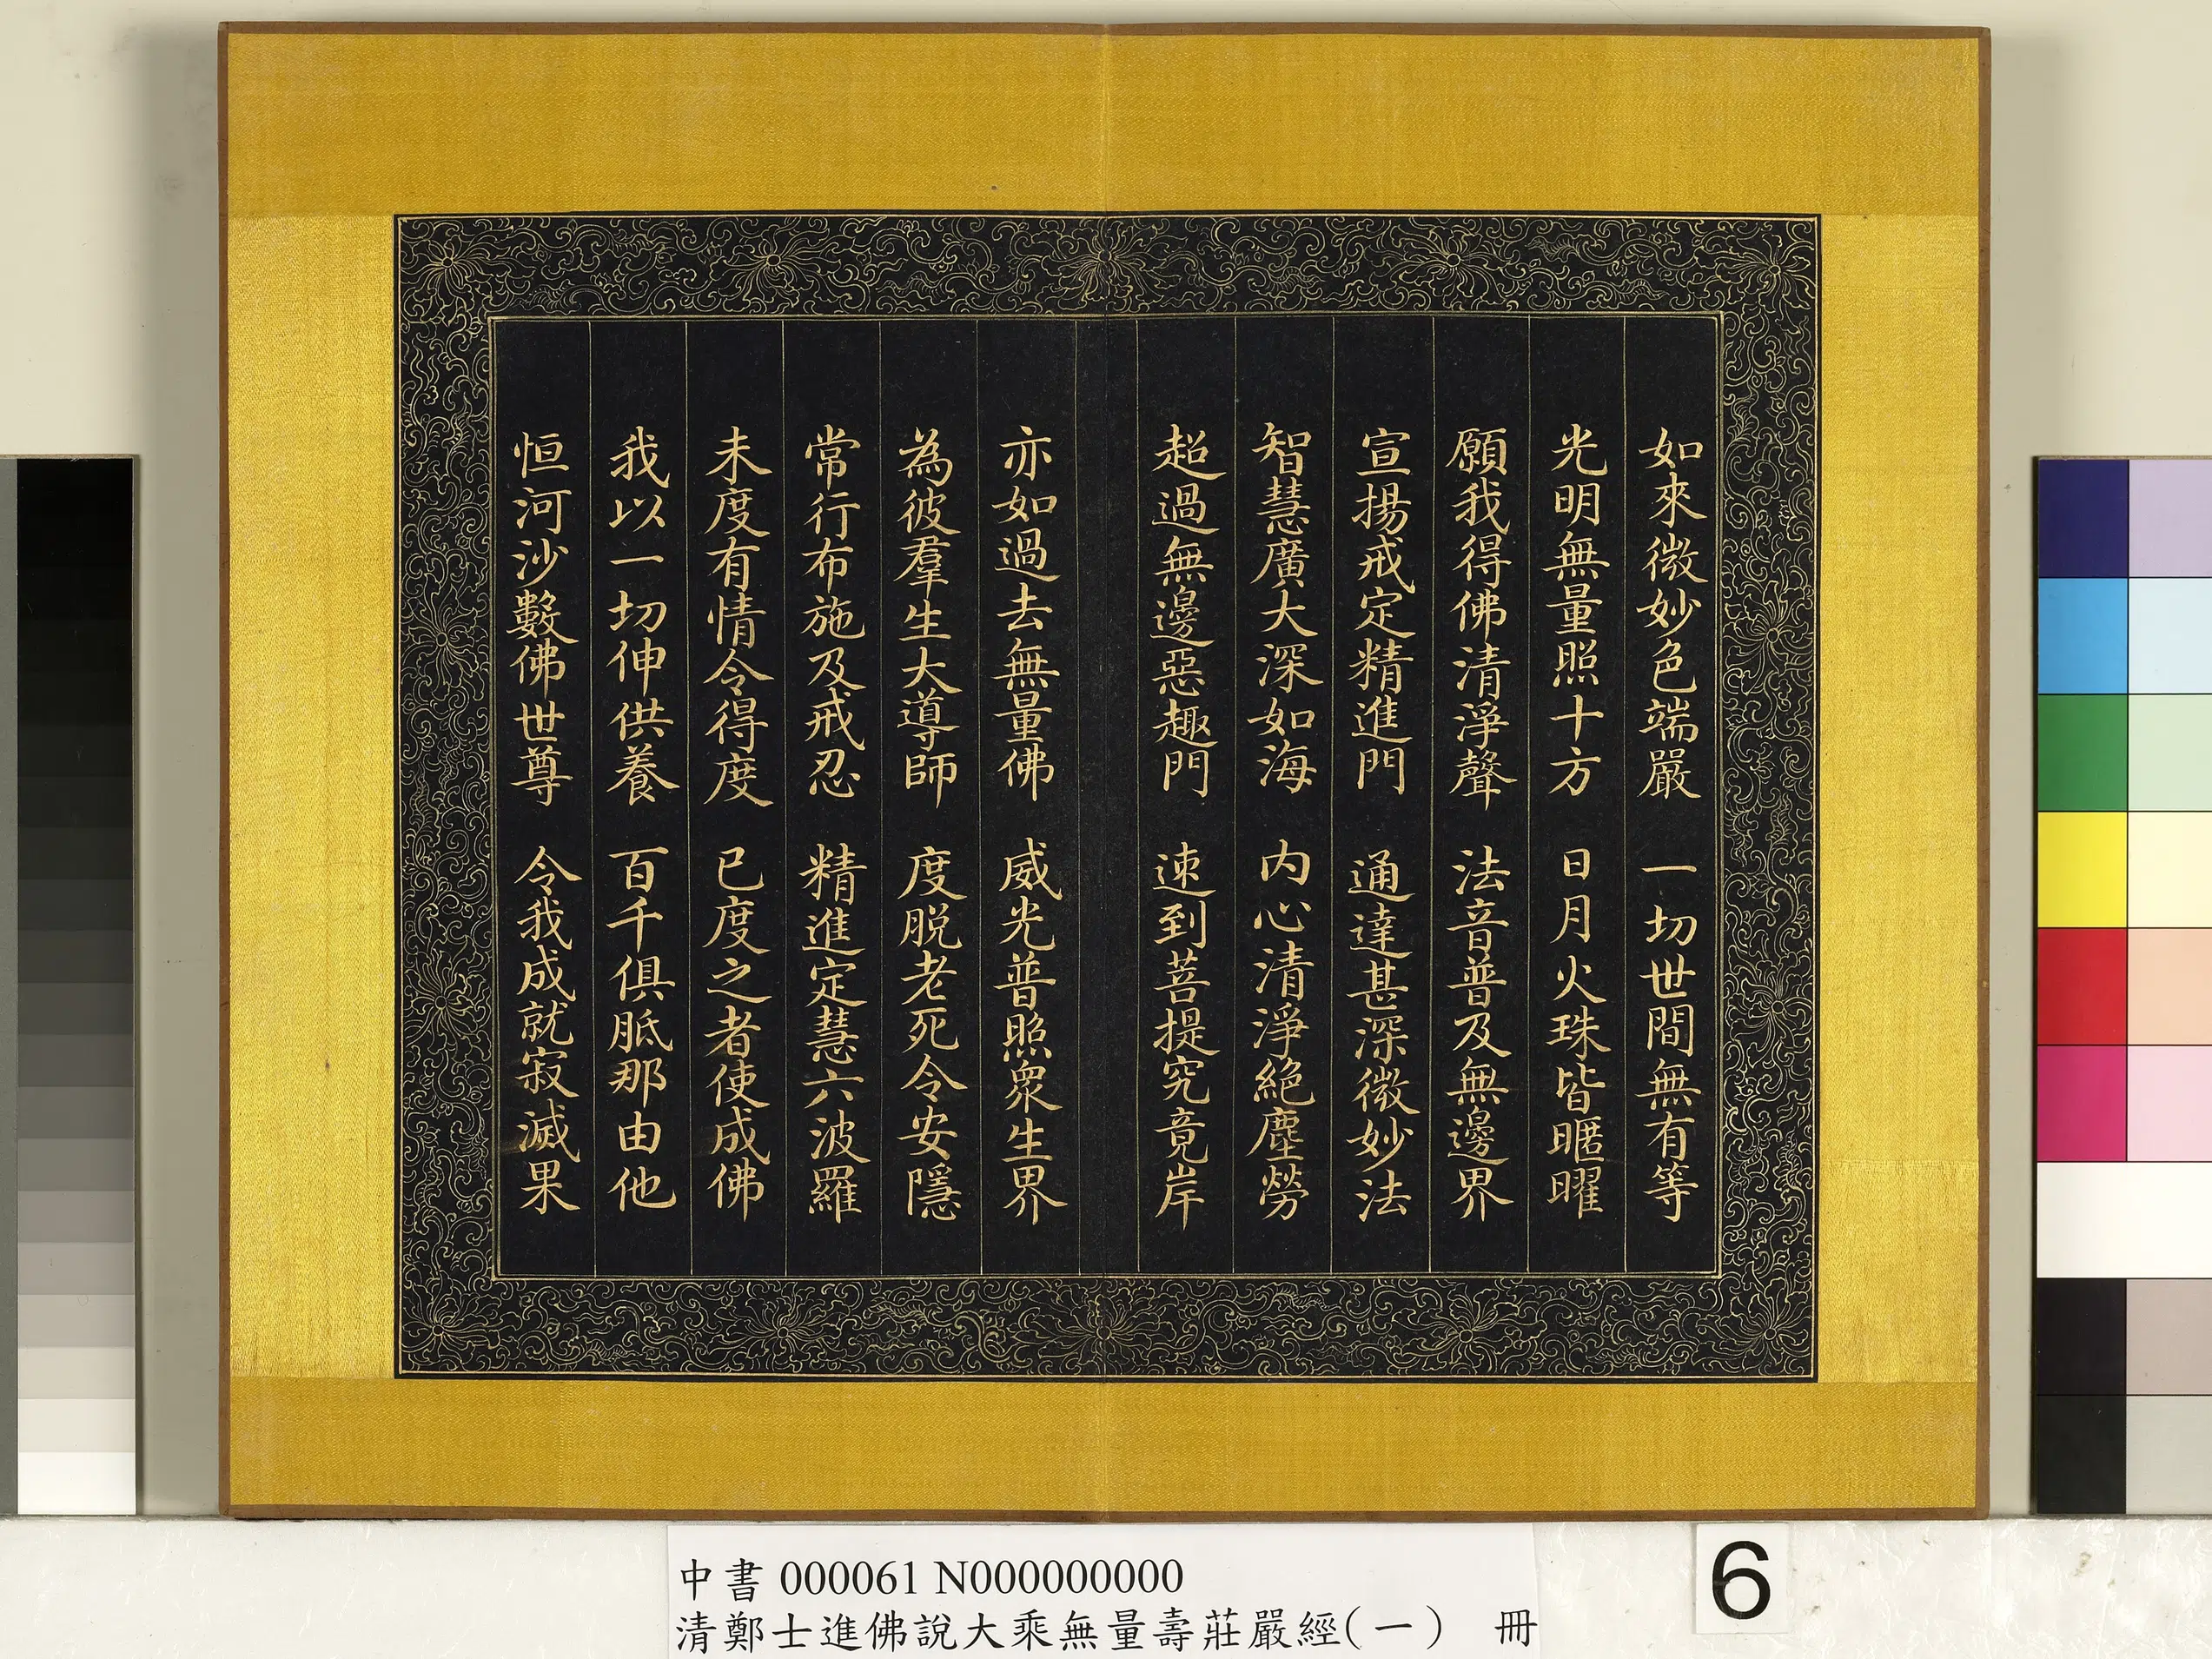 如來微妙色端嚴 一切世間無有等
光明無量照十方 日月火珠皆曜曜
願我得佛清淨聲 法音普及無邊界
宣揚戒定精進門 通達甚深微妙法
智慧廣大深如海 内心清淨絶塵勞
超過無邊惡趣門 速到菩提究竟岸
亦如過去無量佛 威光普照衆生界
為彼羣生大導師 度脱老死令安隱
常行布施及戒忍 精進定慧六波羅
未度有情令得度 已度之者使成佛
我以一切伸供養 百千俱胝那由他
恒河沙數佛世尊 令我成就寂滅果
中書 000061 N000000000
清鄭士進佛說大乘無量壽莊嚴經(一) 冊
6